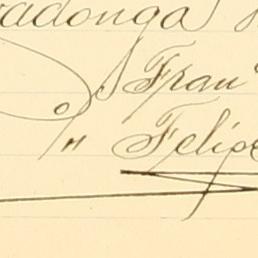 adonga
Fran
Felipe